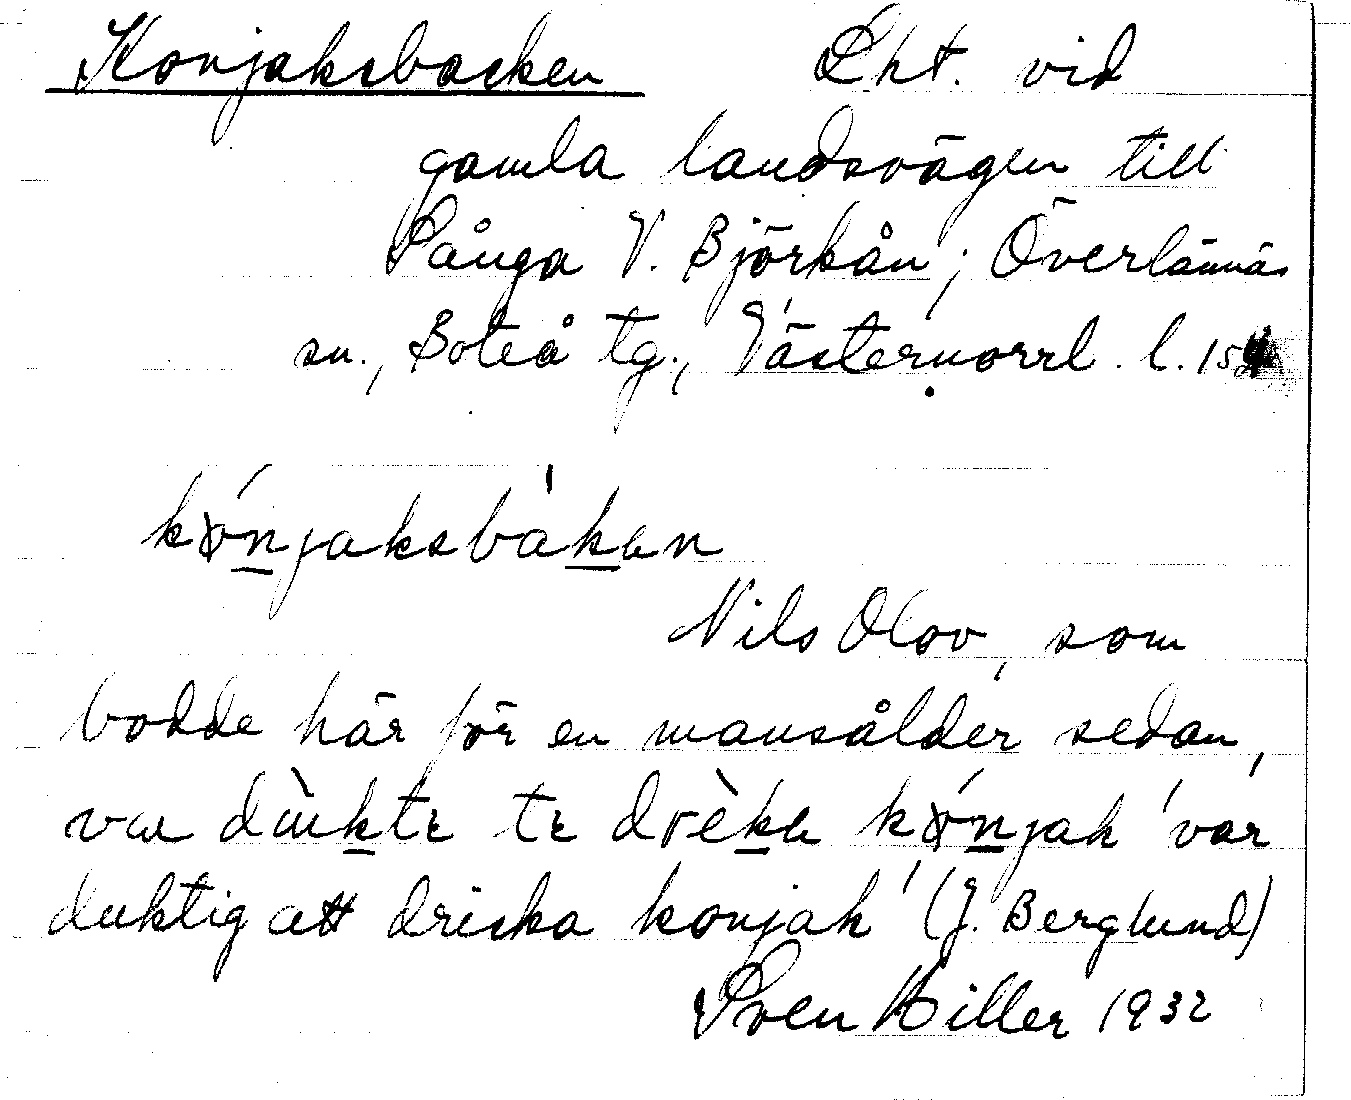 Konjaksbacken Lht. vid
gamla landsvägen till
Sånga V. Björkån; Överlännäs
sn., Boteå tg., Västernorrl. l.
kónjaksbàkan
Nils Olov, som
bodde här för en mansålder sedan,
var te drèka kónjak 'var
duktig att dricka konjak' (J. Berglund)
Sven Hiller 1932